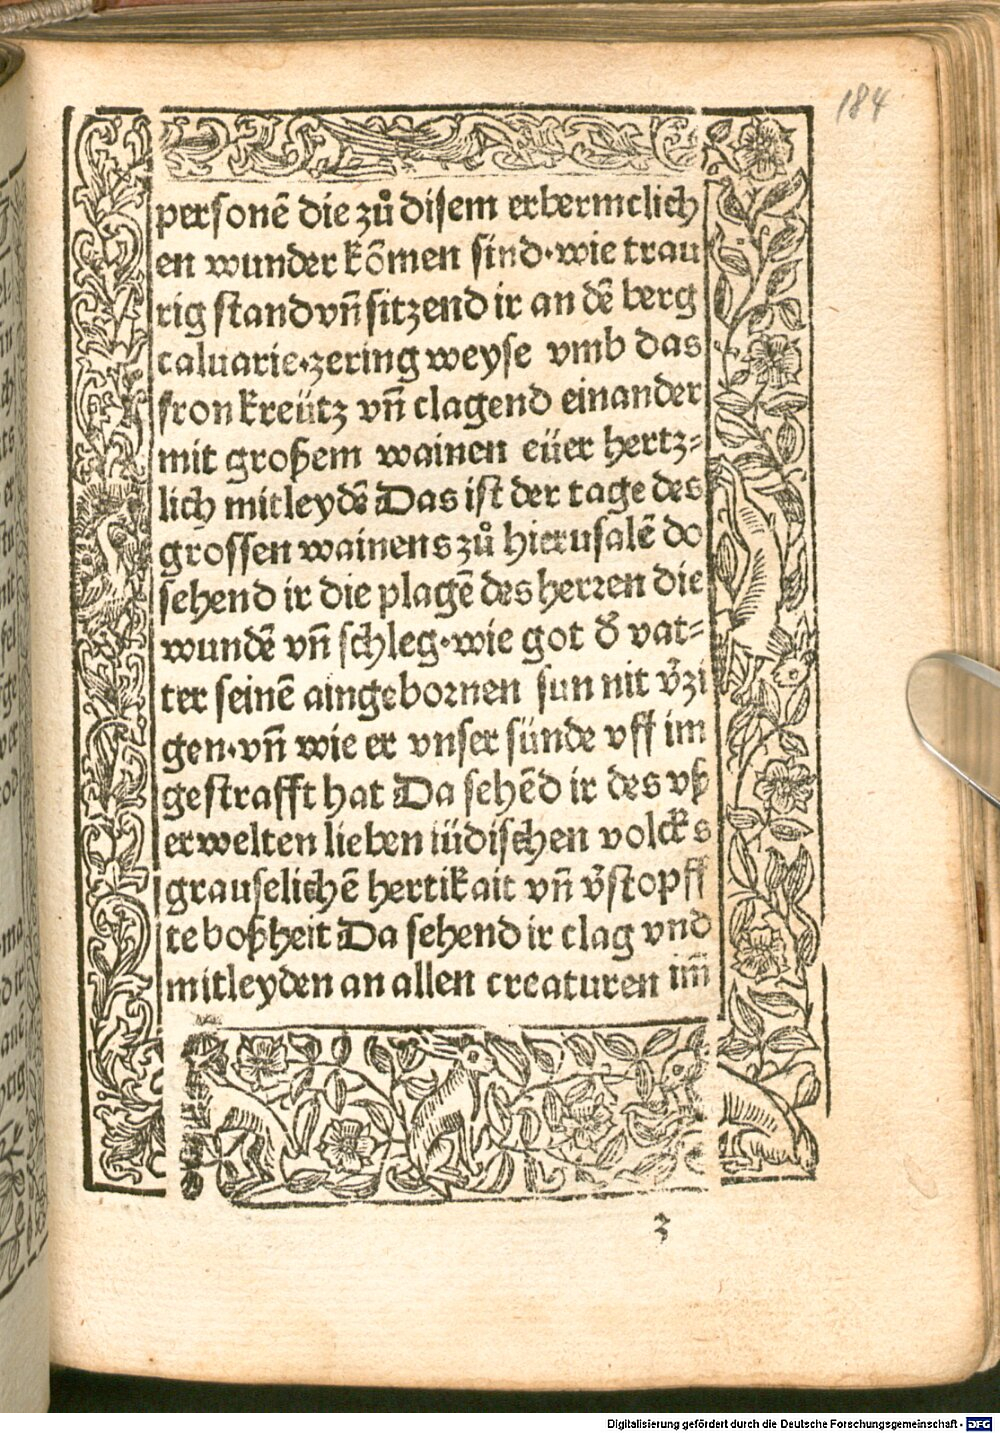 184
personē die zů disem erbermclich
en wunder kōmen sind·wie trau
rig stand vn̄ sitzend ir an dē berg
caluarie·zering weyse vmb das
fron kreütz vn̄ clagend einander
mit großem wainen eüer hertz⸗
lich mitleydē Das ist der tage des
grossen wainens zů hierusalē do
sehend ir die plagē des herren die
wundē vn̄ schleg·wie got d̄ vat⸗
ter seinē aingebornen sun nit v̄zi
gen·vn̄ wie er vnser sünde vff im
gestrafft hat Da sehēd ir des vß
erwelten lieben iüdischen volcks
grauselichē hertikait vn̄ v̄stopff
te boßheit Da sehend ir clag vnd
mitleyden an allen creaturen im̄
z
Digitalisierung gefördert durch die Deutsche Forschungsgemeinschaft - DFG